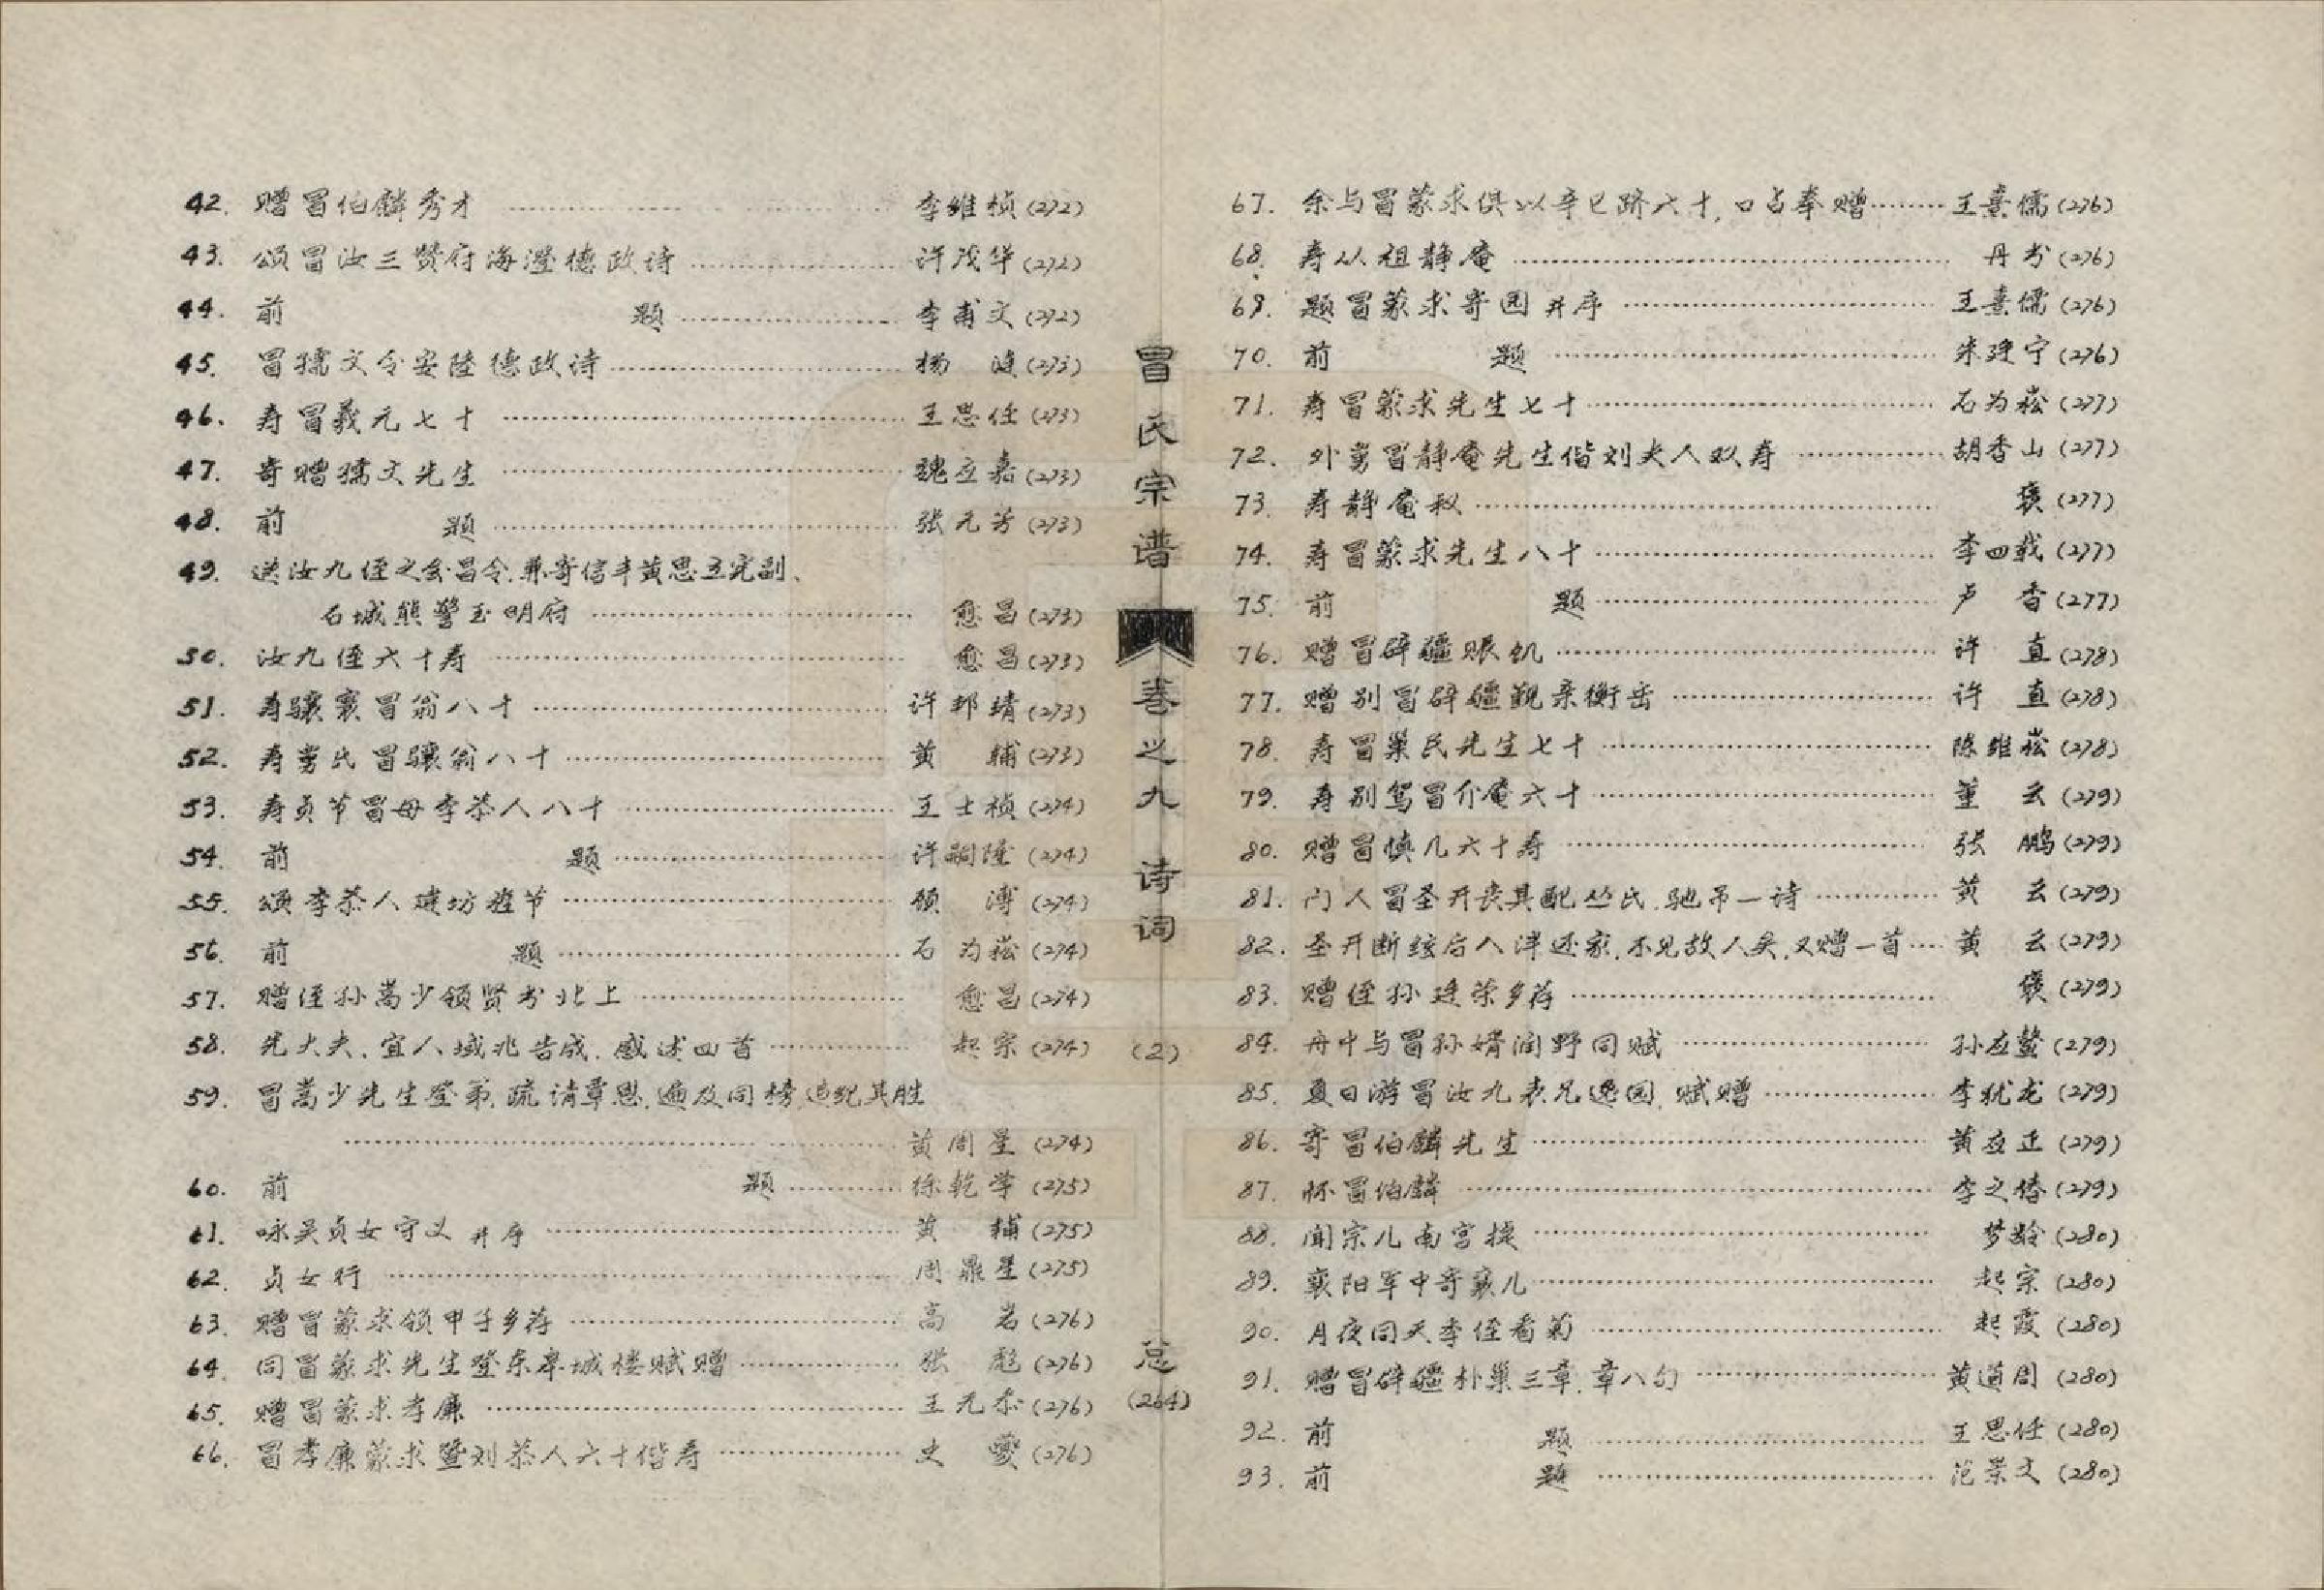 42. 赠冒伯麟秀才 …… 李维桢(272)
43. 颂冒汝三赞府海澄德政诗 …… 许茂华(272)
44. 前 题 …… 李甫文(272)
45. 冒孺文令安陆德政诗 …… 杨 涟(273)
46. 寿冒羲元七十 …… 王思任(273)
47. 寄赠孺文先生 …… 魏应嘉(273)
48. 前 题 …… 张元芳(273)
49. 送汝九侄之会昌令.兼寄信丰黄思立完副、
石城熊警玉明府 …… 愈昌(273)
50. 汝九侄六十寿 …… 愈昌(273)
51. 寿骧襄冒翁八十 …… 许邦靖(273)
52. 寿舅氏冒骧翁八十 …… 黄 辅(273)
53. 寿贞节冒母李恭人八十 …… 王士禛(274)
54. 前 题 …… 许嗣隆(274)
55. 颂李恭人建坊旌节 …… 顾 溥(274)
56. 前 题 …… 石为崧(274)
57. 赠侄孙嵩少领贤书北上 …… 愈昌(274)
58. 先大夫、宜人域兆告成.感述四首 …… 起宗(274)
59. 冒嵩少先生登第.疏请覃恩.遍及同榜.追纪其胜
…… 黄周星(274)
60. 前 题 …… 徐乾学(275)
61. 咏吴贞女守义 并序 …… 黄 辅(275)
62. 贞女行 …… 周鼎星(275)
63. 赠冒蒙求领甲子乡荐 …… 高 岩(276)
64. 同冒蒙求先生登东皋城楼赋赠 …… 张 彪(276)
65. 赠冒蒙求孝廉 …… 王元(276)
66. 冒孝廉蒙求暨刘恭人六十偕寿 …… 史 夔(276)
冒氏宗谱
卷之九 诗词
(2)
总
(264)
67. 余与冒蒙求俱以辛巳跻六十,口占奉赠 …… 王熹儒(276)
68. 寿从祖静庵 …… 丹书(276)
69. 题冒蒙求寄园 并序 …… 王熹儒(276)
70. 前 题 …… 朱建宁(276)
71. 寿冒蒙求先生七十 …… 石为崧(277)
72. 外舅冒静庵先生偕刘夫人双寿 …… 胡香山(277)
73. 寿静庵叔 …… 褒(277)
74. 寿冒蒙求先生八十 …… 李四载(277)
75. 前 题 …… 卢 香(277)
76. 赠冒辟疆赈饥 …… 许 直(278)
77. 赠别冒辟疆觐亲衡岳 …… 许 直(278)
78. 寿冒巢民先生七十 …… 陈维崧(278)
79. 寿别驾冒介庵六十 …… 董 云(279)
80. 赠冒慎几六十寿 …… 张 鹏(279)
81. 门人冒圣开丧其配丛氏.驰吊一诗 …… 黄 云(279)
82. 圣开断弦后入泮还家.不见故人矣.又赠一首 …… 黄 云(279)
83. 赠侄孙廷荣乡荐 …… 褒(279)
84. 舟中与冒孙婿润野同赋 …… 孙应鳌(279)
85. 夏日游冒汝九表兄逸园.赋赠 …… 李犹龙(279)
86. 寄冒伯麟先生 …… 黄应正(279)
87. 怀冒伯麟 …… 李之椿(279)
88. 闻宗儿南宫捷 …… 梦龄(280)
89. 襄阳军中寄襄儿 …… 起宗(280)
90. 月夜同天季侄看菊 …… 起霞(280)
91. 赠冒辟疆朴巢三章.章八句 …… 黄道周(280)
92. 前 题 …… 王思任(280)
93. 前 题 …… 范景文(280)